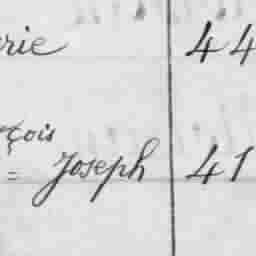 rie 44
çois
= Joseph 41